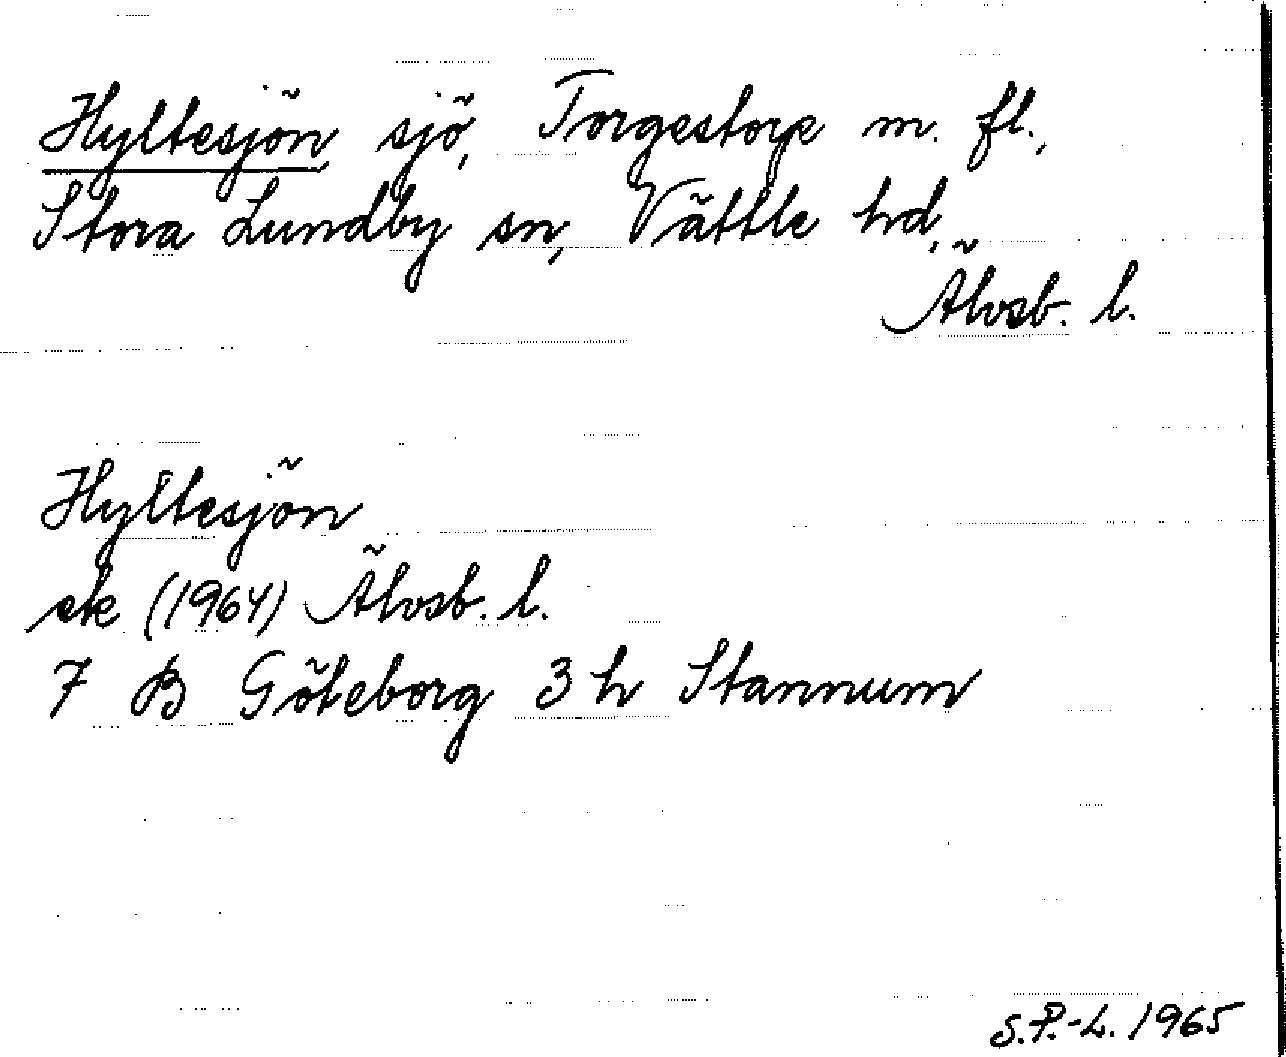 Hyltesjön sjö, Torgestorp m. fl.,
Stora Lundby sn, Vättle hd,
Älvsb. l.
Hyltesjön
ek (1964) Älvsb. l.
7 B Göteborg 3 h Stannum
S.P.-L. 1965